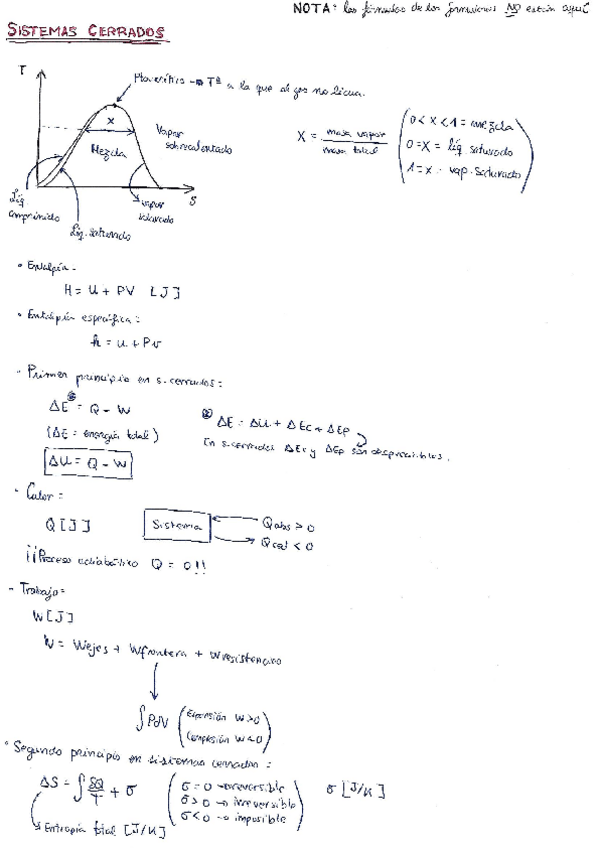 NOTA: las fórmulas de los formularios NO están aquí
SISTEMAS CERRADOS
T
Pto crítico → Tª a la que el gas no licua.
X
Vapor sobrecalentado
Mezcla
s
Líq. comprimido
Líq. saturado
vapor saturado
X = masa vapor / masa total
0 < X < 1 = mezcla
0 = X = líq saturado
1 = x = vap. saturado
• Entalpía -
H = U + PV [J]
• Entalpía específica:
h = u + Pv
- Primer principio en s. cerrados:
ΔE = Q - W
ΔE = ΔU + ΔEc + ΔEp
(ΔE = energía total)
En s. cerrados ΔEc y ΔEp son despreciables.
ΔU = Q - W
• Calor =
Q [J]
Sistema
Qabs > 0
Qced < 0
¡¡Proceso adiabático Q = 0!!
- Trabajo=
W [J]
W = Wejes + Wfrontera + Wresistencia
∫PdV
(Expansión W>0
Compresión W<0)
• Segundo principio en sistemas cerrados:
ΔS = ∫ δQ/T + σ
σ = 0 →
σ > 0 → irreversible
σ < 0 → imposible
σ [J/K]
Entropía total [J/K]